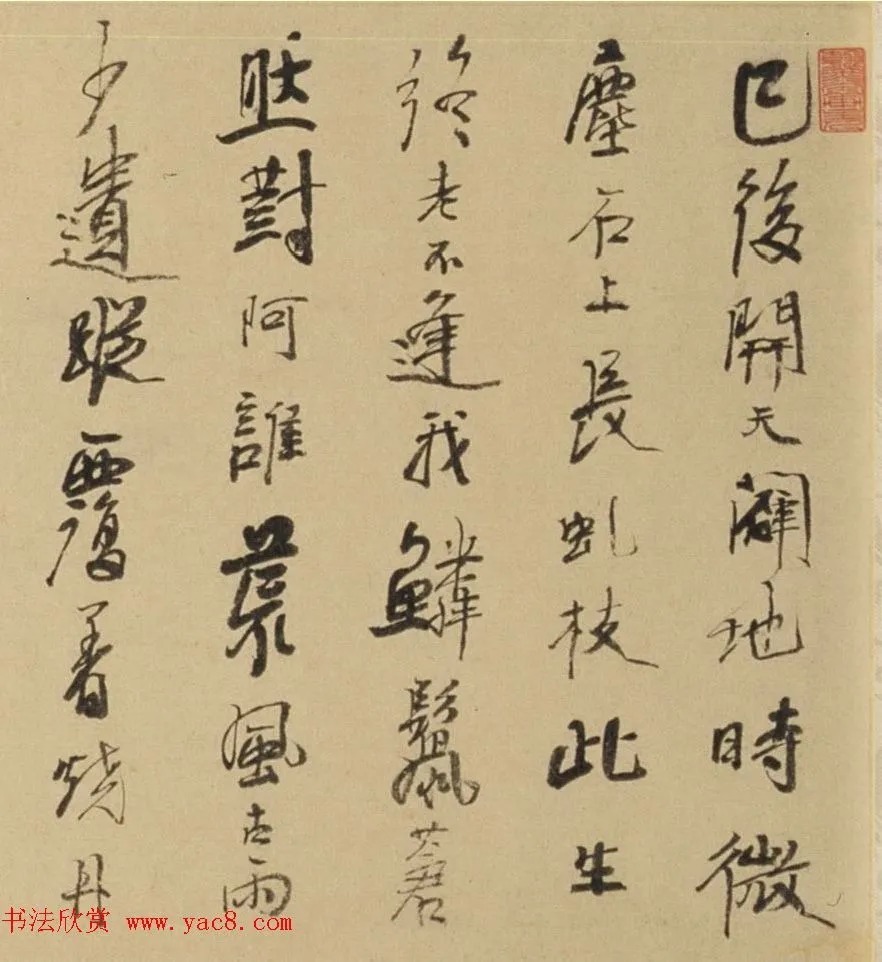 已後開天闢地時微
塵石上長虬枝此生
終老不逢我鱗鬣蒼
然對阿誰風古雨
遺蹤覆著燒丹
书法欣赏 www.yac8.com